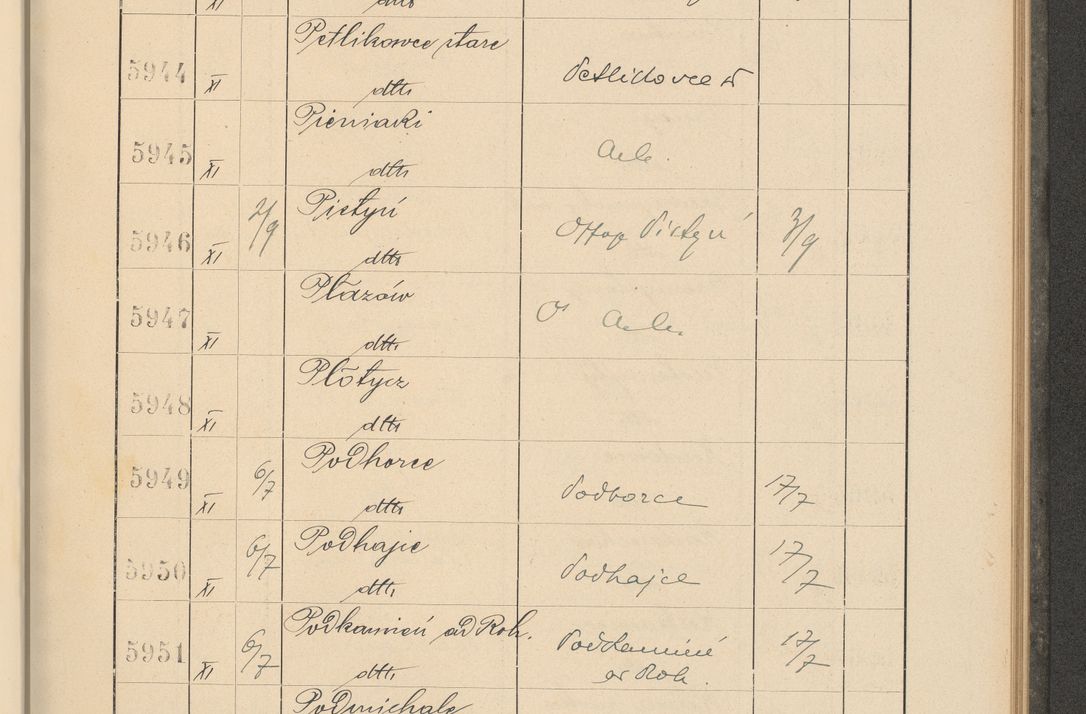 XI dtto
Petlikowce stare
5944 XI dtto Petlikovce st
Pieniaki
5945 XI dtto
Pistyń
5946 XI 2/9 dtto Pistyń 3/9
Płazów
5947 XI dtto
Płotycz
5948 XI dtto
Podhorce
5949 XI 6/7 dtto Podhorce 17/7
Podhajce
5950 XI 6/7 dtto Podhajce 17/7
Podkamień ad Roh.
5951 XI 6/7 dtto Podkamień 17/7
ad Roh.
Podmichale